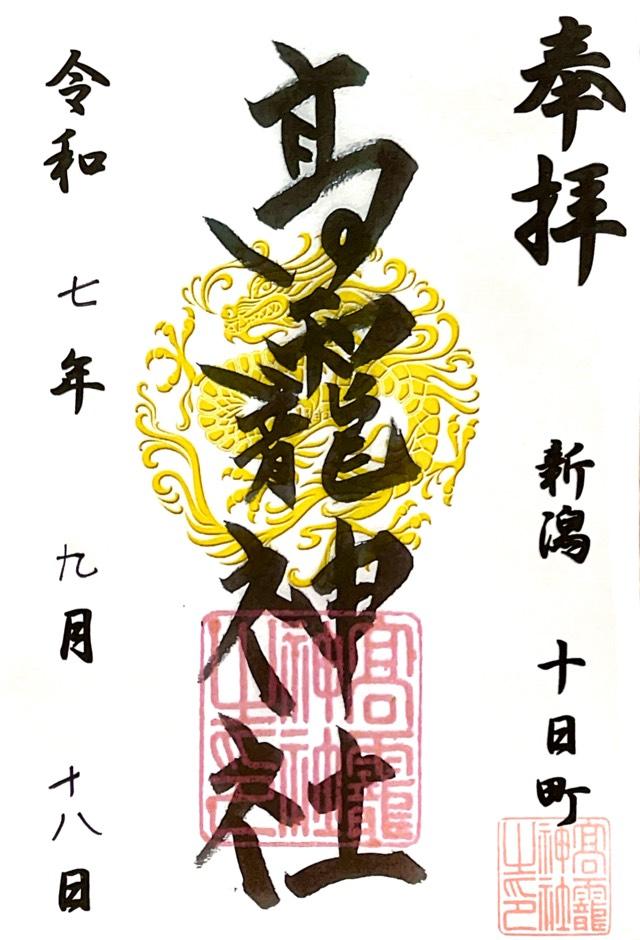 奉拝
新潟 十日町
高龗神社
令和 七年 九月 十八日
高龗
神社
之印
高龗
神社
之印